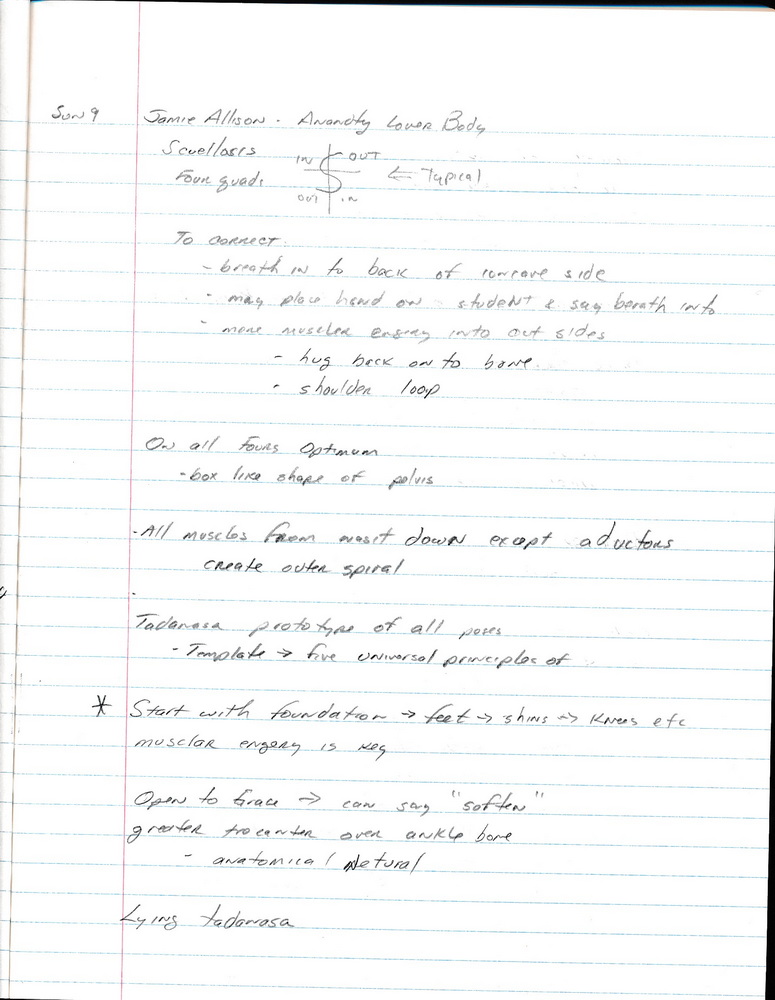 Sun 9 Jamie Allison - Anandty Lower Body
Scuelloses IN OUT
Four quads OUT IN ← Typical
To correct
- breath in to back of concave side
- may place hand on student & say berath into
- more muscler engray into out sides
- hug back on to bone
- shoulder loop
On all Fours Optimum
- box like shape of pelvis
- All muscles from wasit down except aductors
create outer spiral
Tadanasa prototype of all poses
- Template → five universal principles of
* Start with foundation → feet → shins → knees etc
musclar engery is key
Open to Grace → can say "soften"
greater trocanter over ankle bone
- anatomical Netural
Lying tadanasa